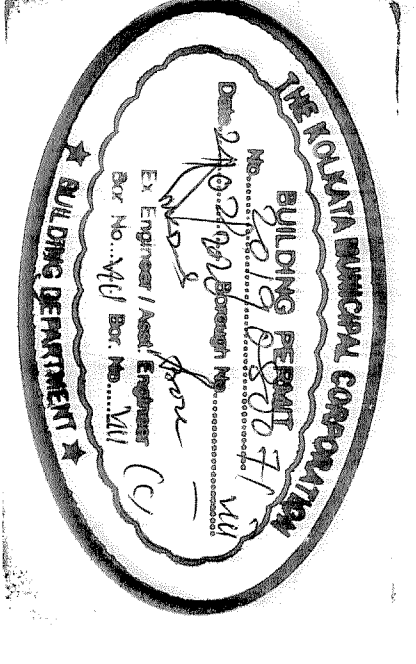 THE KOLKATA MUNICIPAL CORPORATION
BUILDING PERMIT
No. 2019080071
Date Borough No. VIII
Ex. Engineer / Asst. Engineer (C)
Bor. No. VIII Bor. No. VIII
★ BUILDING DEPARTMENT ★